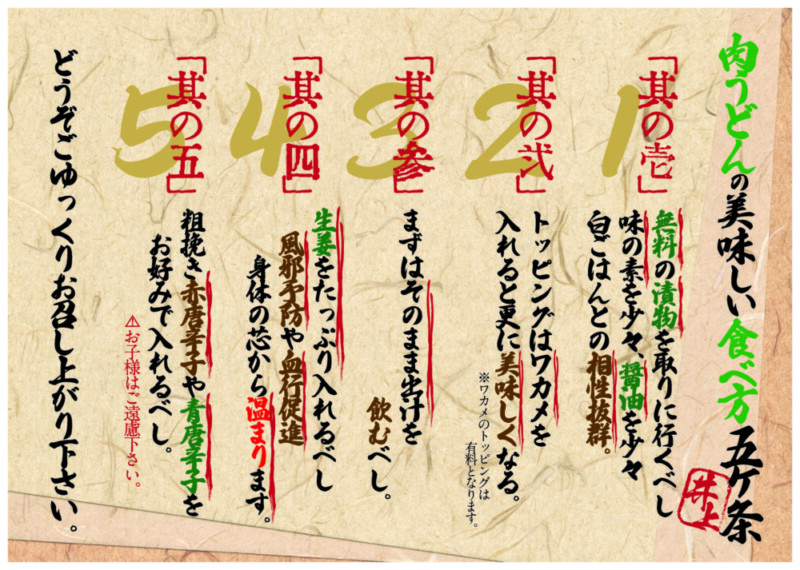 肉うどんの美味しい食べ方五ヶ条
井上
「其の壱」
1
無料の漬物を取りに行くべし
味の素を少々、醤油を少々
白ごはんとの相性抜群。
「其の弐」
2
トッピングはワカメを
入れると更に美味しくなる。
※ワカメのトッピングは
有料となります。
「其の参」
3
まずはそのまま出汁を
飲むべし。
「其の四」
4
生姜をたっぷり入れるべし
風邪予防や血行促進
身体の芯から温まります。
「其の五」
5
粗挽き赤唐辛子や青唐辛子を
お好みで入れるべし。
⚠お子様はご遠慮下さい。
どうぞごゆっくりお召し上がり下さい。